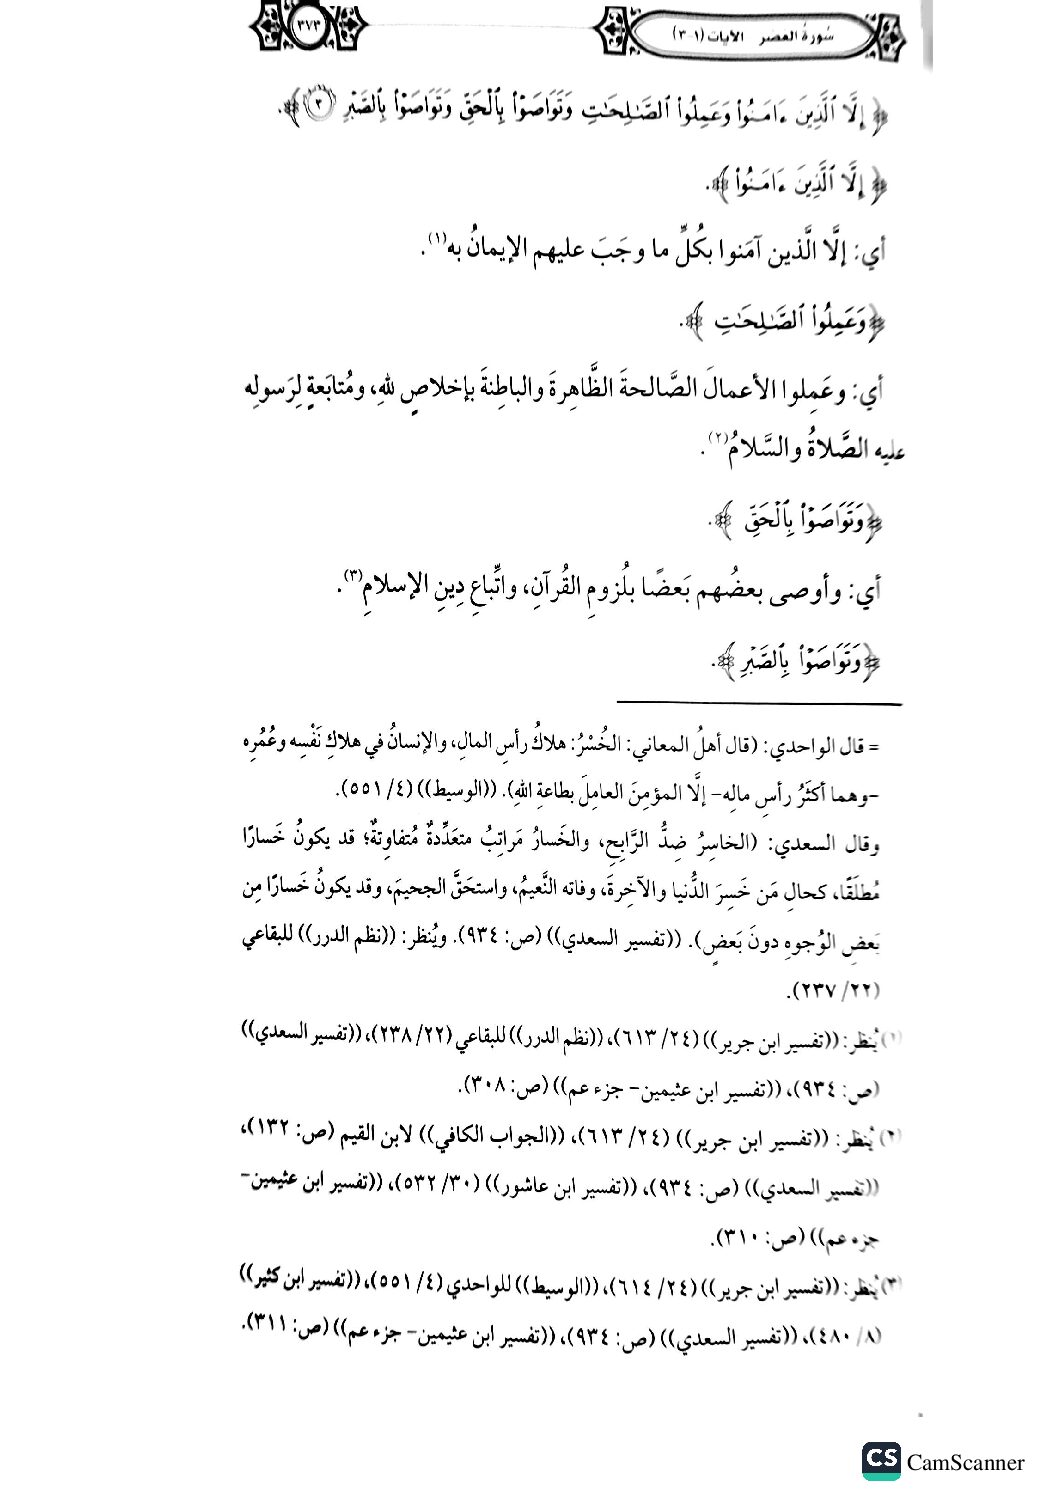 سُورةُ العصر الآيات (١-٣)
٣٧٣
﴿إِلَّا ٱلَّذِينَ ءَامَنُوا۟ وَعَمِلُوا۟ ٱلصَّـٰلِحَـٰتِ وَتَوَاصَوْا۟ بِٱلْحَقِّ وَتَوَاصَوْا۟ بِٱلصَّبْرِ ٣﴾.
﴿إِلَّا ٱلَّذِينَ ءَامَنُوا۟﴾.
أي: إلَّا الَّذين آمَنوا بكُلِّ ما وجَبَ عليهم الإيمانُ به(١).
﴿وَعَمِلُوا۟ ٱلصَّـٰلِحَـٰتِ﴾.
أي: وعَمِلوا الأعمالَ الصَّالحةَ الظَّاهِرةَ والباطِنةَ بإخلاصٍ للهِ، ومُتابَعةٍ لِرَسولِه
عليه الصَّلاةُ والسَّلامُ(٢).
﴿وَتَوَاصَوْا۟ بِٱلْحَقِّ﴾.
أي: وأوصى بعضُهم بَعضًا بلُزومِ القُرآنِ، واتِّباعِ دِينِ الإسلامِ(٣).
﴿وَتَوَاصَوْا۟ بِٱلصَّبْرِ﴾.
= قال الواحدي: (قال أهلُ المعاني: الخُسْرُ: هلاكُ رأسِ المالِ، والإنسانُ في هلاكِ نَفْسِه وعُمُرِه
-وهما أكثَرُ رأسِ مالِه- إلَّا المؤمِنَ العامِلَ بطاعةِ اللهِ). ((الوسيط)) (٤/ ٥٥١).
وقال السعدي: (الخاسِرُ ضِدُّ الرَّابِحِ، والخَسارُ مَراتِبُ متعَدِّدةٌ مُتفاوِتةٌ؛ قد يكونُ خَسارًا
مُطلَقًا، كحالِ مَن خَسِرَ الدُّنيا والآخِرةَ، وفاته النَّعيمُ، واستحَقَّ الجحيمَ، وقد يكونُ خَسارًا مِن
بَعضِ الوُجوهِ دونَ بَعضٍ). ((تفسير السعدي)) (ص: ٩٣٤). ويُنظر: ((نظم الدرر)) للبقاعي
(٢٢/ ٢٣٧).
(١) يُنظر: ((تفسير ابن جرير)) (٢٤/ ٦١٣)، ((نظم الدرر)) للبقاعي (٢٢/ ٢٣٨)، ((تفسير السعدي))
(ص: ٩٣٤)، ((تفسير ابن عثيمين- جزء عم)) (ص: ٣٠٨).
(٢) يُنظر: ((تفسير ابن جرير)) (٢٤/ ٦١٣)، ((الجواب الكافي)) لابن القيم (ص: ١٣٢)،
((تفسير السعدي)) (ص: ٩٣٤)، ((تفسير ابن عاشور)) (٣٠/ ٥٣٢)، ((تفسير ابن عثيمين-
جزء عم)) (ص: ٣١٠).
(٣) يُنظر: ((تفسير ابن جرير)) (٢٤/ ٦١٤)، ((الوسيط)) للواحدي (٤/ ٥٥١)، ((تفسير ابن كثير))
(٨/ ٤٨٠)، ((تفسير السعدي)) (ص: ٩٣٤)، ((تفسير ابن عثيمين- جزء عم)) (ص: ٣١١).
CS CamScanner